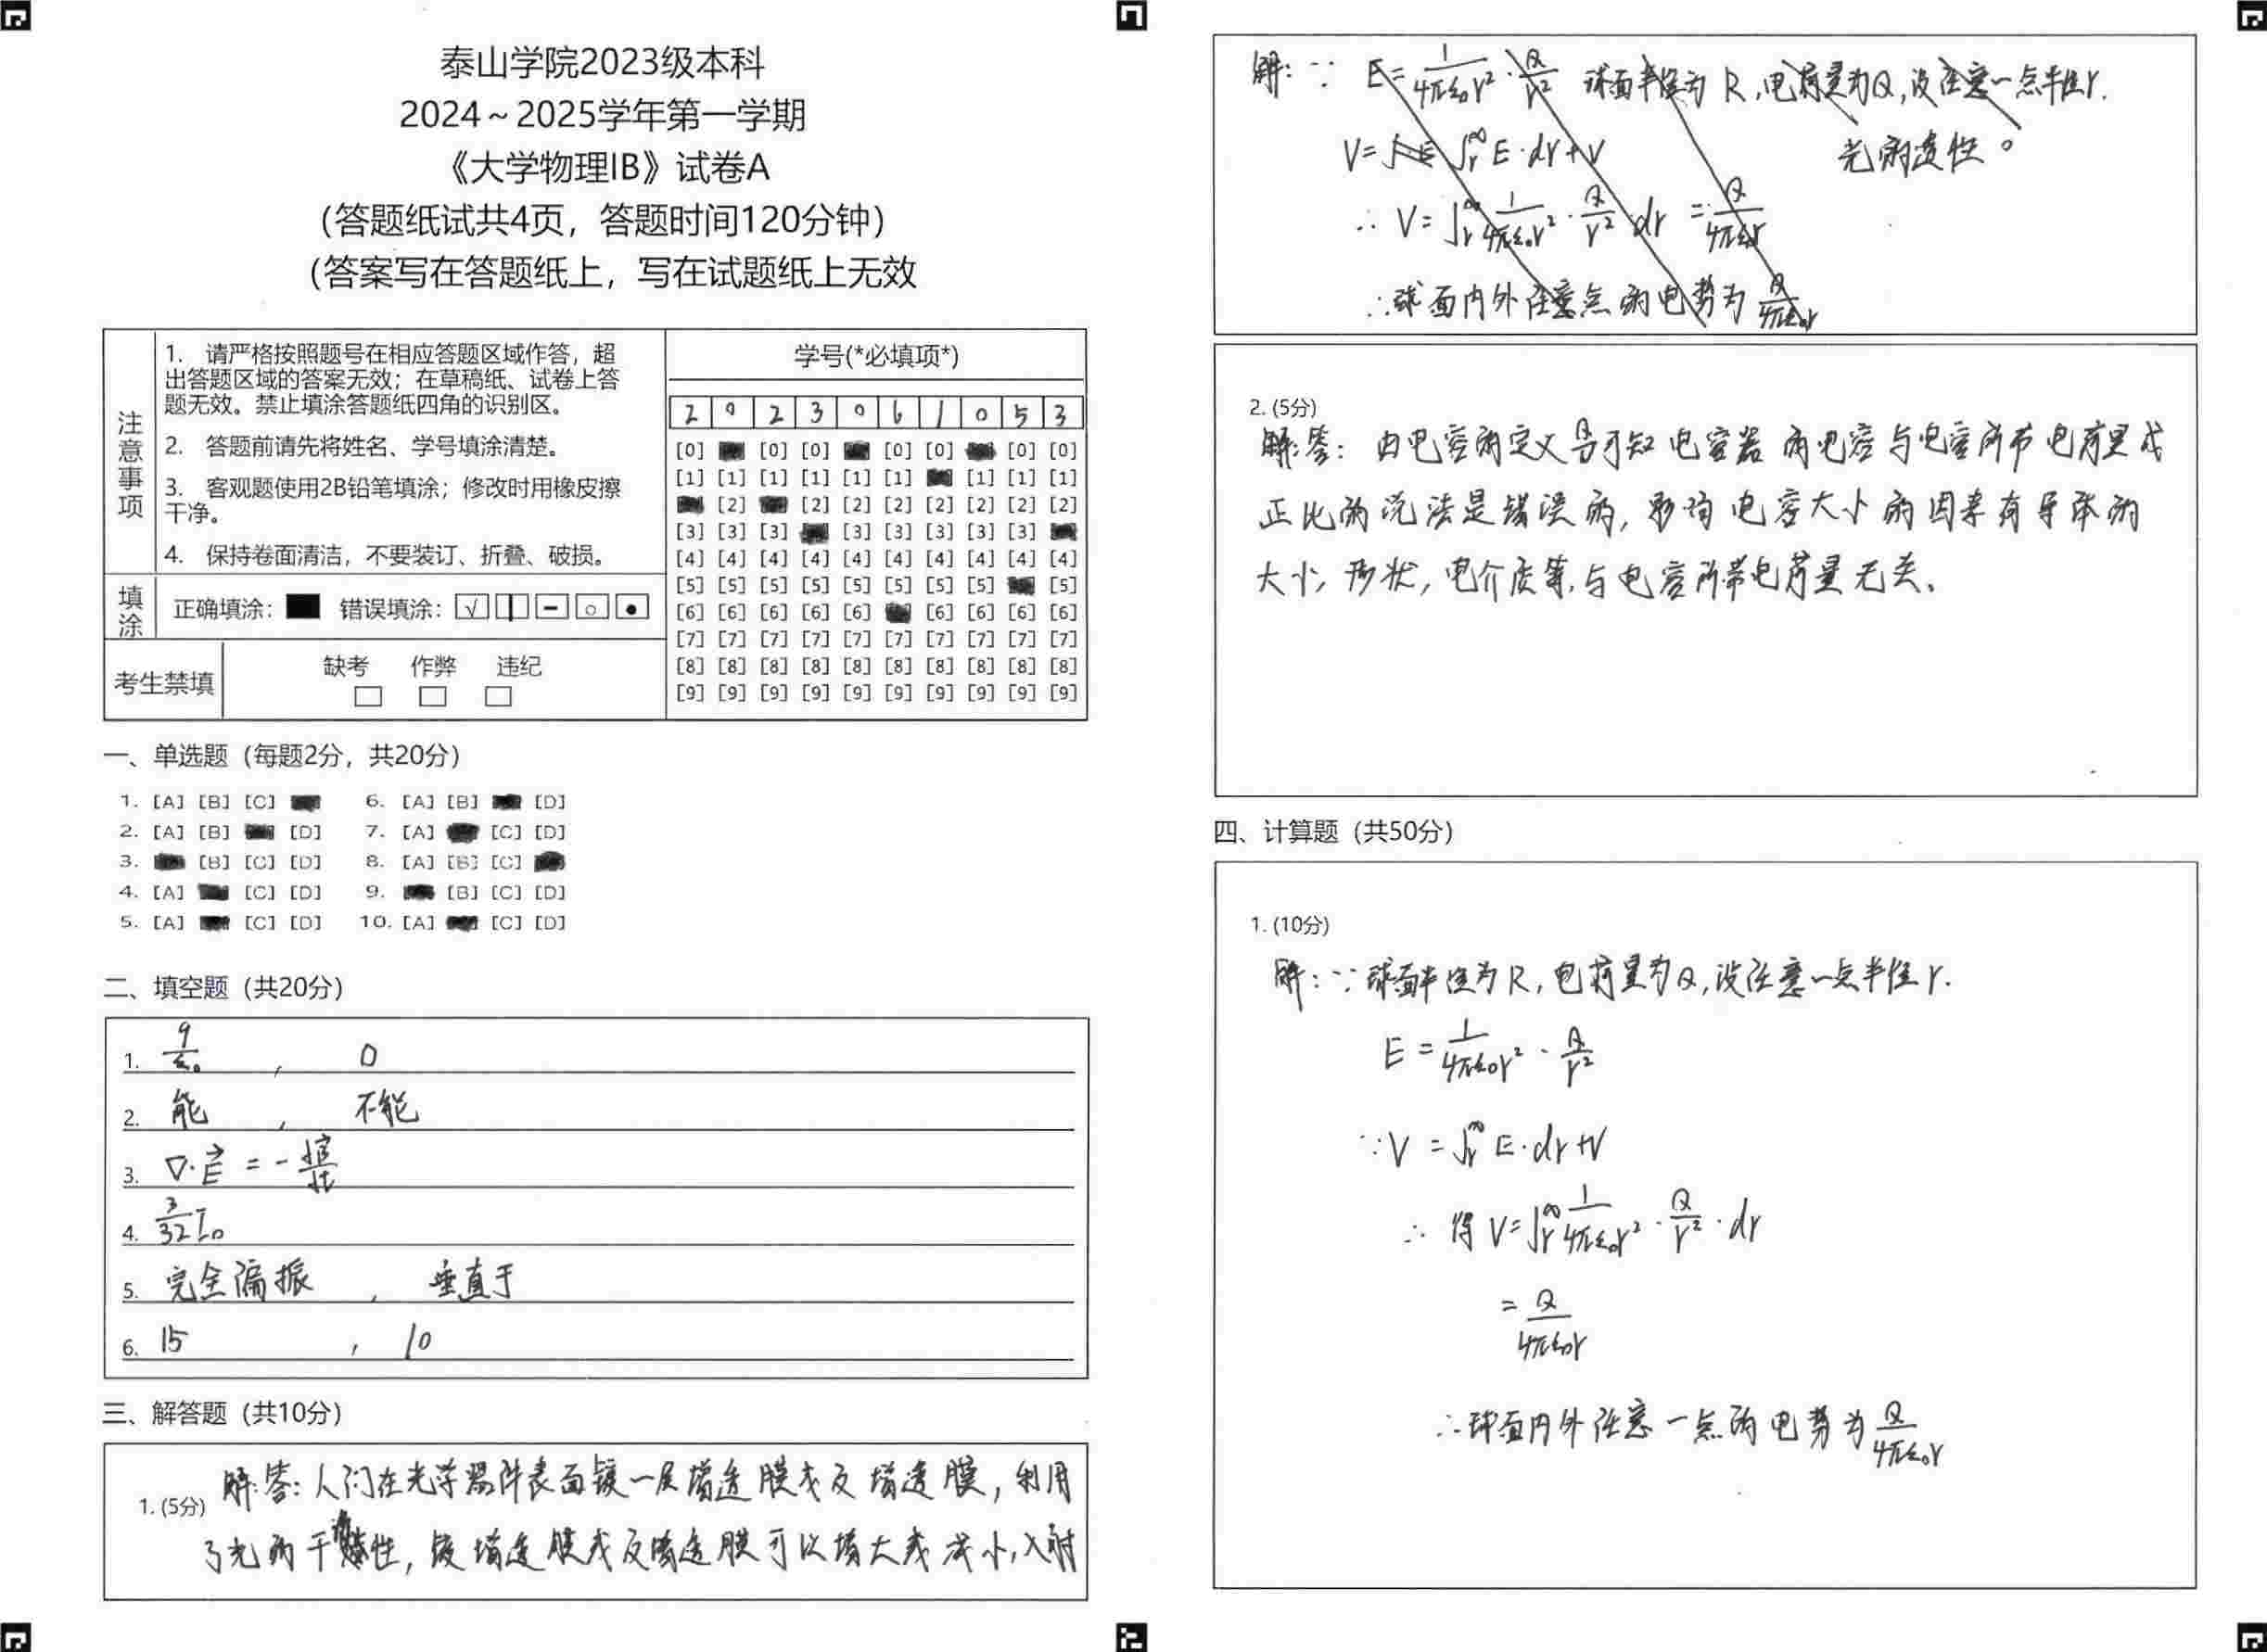 泰山学院2023级本科
2024～2025学年第一学期
《大学物理IB》试卷A
（答题纸试共4页，答题时间120分钟）
（答案写在答题纸上，写在试题纸上无效
注意事项
1. 请严格按照题号在相应答题区域作答，超
出答题区域的答案无效；在草稿纸、试卷上答
题无效。禁止填涂答题纸四角的识别区。
2. 答题前请先将姓名、学号填涂清楚。
3. 客观题使用2B铅笔填涂；修改时用橡皮擦
干净。
4. 保持卷面清洁，不要装订、折叠、破损。
填涂
正确填涂： 错误填涂：
考生禁填
缺考 作弊 违纪
学号(*必填项*)
2 0 2 3 0 6 1 0 5 3
[0] [0] [0] [0] [0] [0] [0]
[1] [1] [1] [1] [1] [1] [1] [1] [1]
[2] [2] [2] [2] [2] [2] [2] [2]
[3] [3] [3] [3] [3] [3] [3] [3]
[4] [4] [4] [4] [4] [4] [4] [4] [4] [4]
[5] [5] [5] [5] [5] [5] [5] [5] [5]
[6] [6] [6] [6] [6] [6] [6] [6] [6]
[7] [7] [7] [7] [7] [7] [7] [7] [7] [7]
[8] [8] [8] [8] [8] [8] [8] [8] [8] [8]
[9] [9] [9] [9] [9] [9] [9] [9] [9] [9]
一、单选题（每题2分，共20分）
1. [A] [B] [C] 6. [A] [B] [D]
2. [A] [B] [D] 7. [A] [C] [D]
3. [B] [C] [D] 8. [A] [B] [C]
4. [A] [C] [D] 9. [B] [C] [D]
5. [A] [C] [D] 10. [A] [C] [D]
二、填空题（共20分）
1. q/ε₀ ， 0
2. 能 ， 不能
3. ∇·E⃗ = -dB⃗/dt
4. 3/32 I₀
5. 完全偏振 ， 垂直于
6. 15 ， 10
三、解答题（共10分）
1. (5分) 解:答: 人们在光学器件表面镀一层增透膜或反增透膜，利用
了光的干涉性，镀增透膜或反增透膜可以增大或减小入射
解: ∵ E = 1/4πε₀r² · Q/r² 球面半径为R，电荷量为Q，设任意一点半径r.
V = ∫r^∞ E·dr+V 光的透性。
∴ V = ∫r^∞ 1/4πε₀r² · Q/r² · dr = Q/4πε₀r
∴球面内外任意点的电势为 Q/4πε₀r
2. (5分)
解:答: 由电容的定义 可知 电容器的电容与电容所带电荷量成
正比的说法是错误的，影响电容大小的因素有导体的
大小，形状，电介质等，与电容所带电荷量无关。
四、计算题（共50分）
1. (10分)
解: ∵球面半径为R，电荷量为Q，设任意一点半径r.
E = 1/4πε₀r² · Q/r²
∵ V = ∫r^∞ E·dr+V
∴ 得 V = ∫r^∞ 1/4πε₀r² · Q/r² · dr
= Q/4πε₀r
∴球面内外任意一点的电势为 Q/4πε₀r